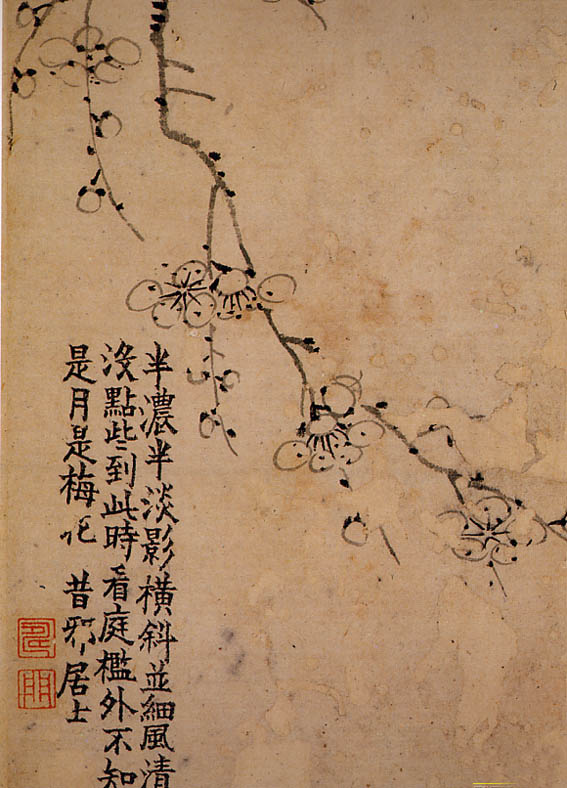 半濃半淡影橫斜並細風清
沒點些到此時看庭檻外不知
是月是梅花 昔邪居士